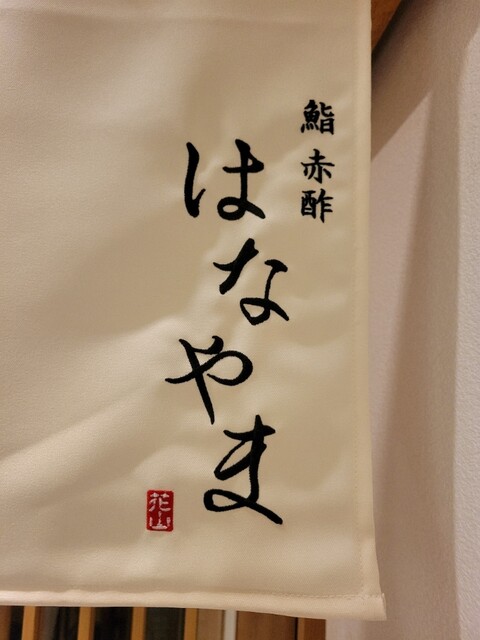 鮨 赤酢
はなやま
花山